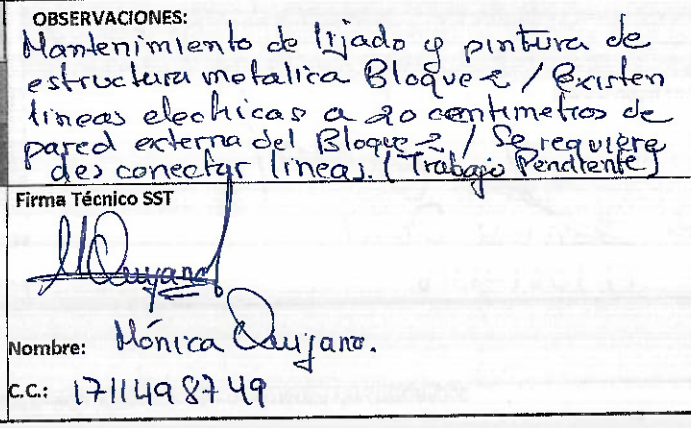 OBSERVACIONES:
Mantenimiento de lijado y pintura de
estructura metalica Bloque 2 / Existen
lineas electricas a 20 centimetros de
pared externa del Bloque 2 / Se requiere
desconectar lineas. (Trabajo Pendiente)
Firma Técnico SST
MQuijano
Nombre: Mónica Quijano.
C.C.: 1711498749